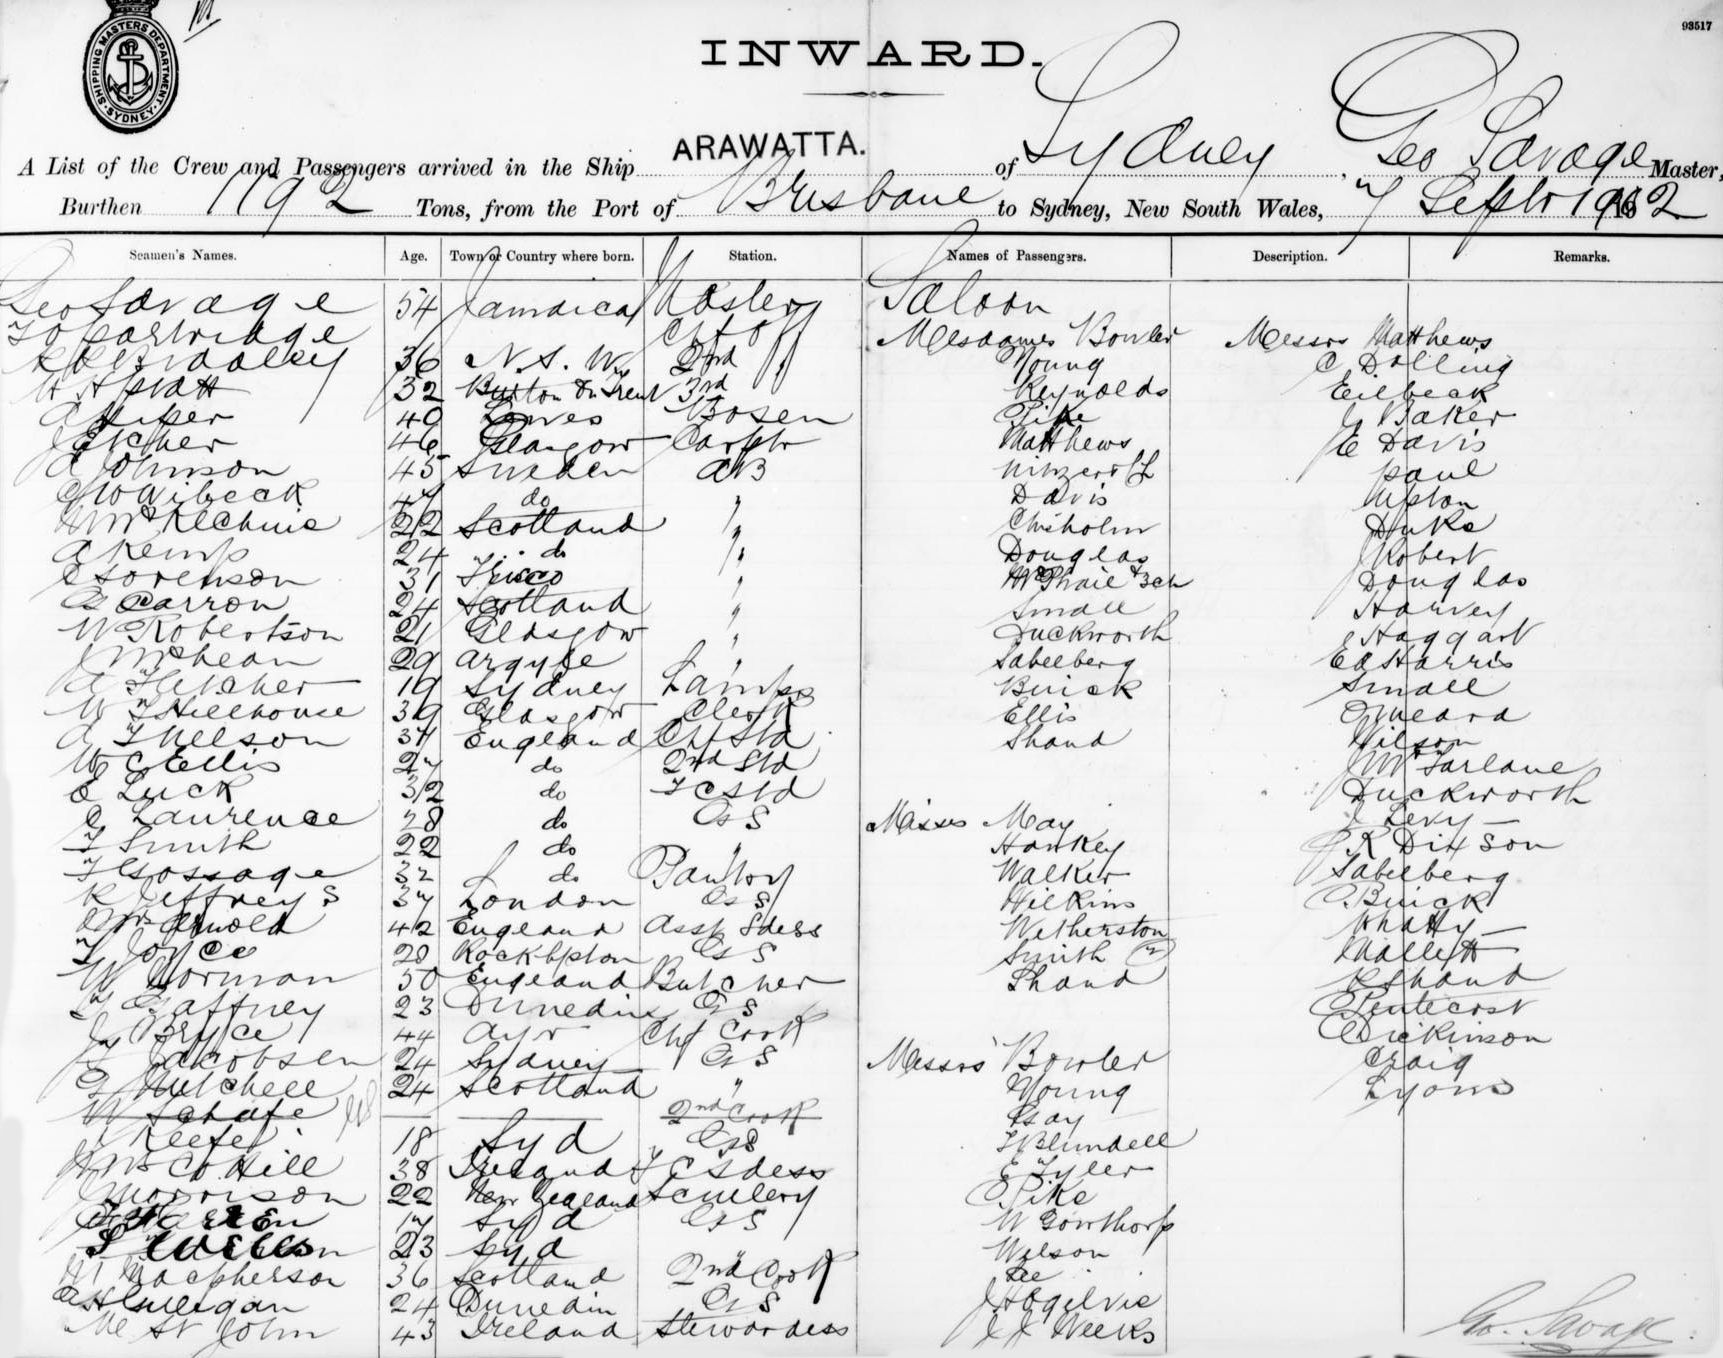 93517
SHIPPING MASTERS DEPARTMENT. SYDNEY
INWARD.
A List of the Crew and Passengers arrived in the Ship ARAWATTA. of Sydney, Geo Savage Master,
Burthen 1192 Tons, from the Port of Brisbane to Sydney, New South Wales, 7 Septr 1902
Seamen's Names. Age. Town or Country where born. Station. Names of Passengers. Description. Remarks.
Geo Savage 54 Jamaica Master Saloon
Partridge Ch Off Mesdames Bowler Messrs Matthews
36 N. S. W 2nd Young C Dolling
W H 32 Burton On Trent 3rd Reynolds Eilbeck
A Piper 40 Bosen Pike J Baker
46 Glasgow Carptr Matthews E Davis
A Johnson 45 Sweden AB Paul
47 do " Davis Upton
McKechnie 22 Scotland " Chisholm Duke
A Kemp 24 do " Douglas J Robert
C Sorenson 31 Frisco " McPhail & 3ch Douglas
G Carron 24 Scotland " Small Harvey
W Robertson 21 Glasgow " Duckworth Haggart
J McLean 29 Argyle " Sabelberg Ed Harris
A Fletcher 19 Sydney Lamps Buick Small
W Hillhouse 39 Glasgow Clerk Ellis Meara
A Nelson 34 England Ch Std Shand Wilson
W C Ellis 27 do 2nd Std J McFarlane
E Luck 32 do F C Std Duckworth
C Laurence 28 do G S Misses May J Levy
F Smith 22 do " Hankey R Dixson
F Gossage 32 do Pantry Walker Sabelberg
R Jeffreys 37 London G S Wilkins C Buick
Mrs Arnold 42 England Asst Sdess Wetherston Whatty
F Joyce 20 Rockhpton G S Smith (2) Mallett
W Gorman 50 England Butcher Shand R Shand
Gaffney 23 Dunedin G S Pentecost
J Bryce 44 Ayr Chf Cook Dickinson
Jacobsen 24 Sydney G S Messrs Bowler Craig
G Mitchell 24 Scotland " Young Lyons
W Schafe 2nd Cook Gay
Keefe 18 Syd G S F Blundell
Mrs Co Hill 38 Ireland F C Sdess E Tyler
J Morrison 22 New Zealand Scullery C Pike
17 Syd G S W Gowthorp
23 Syd " Wilson
Macpherson 36 Scotland 2nd Cook Lee
A H Culligan 24 Dunedin G S J H Ogilvie
Me St John 43 Ireland Stewardess J J Weeks
Geo. Savage